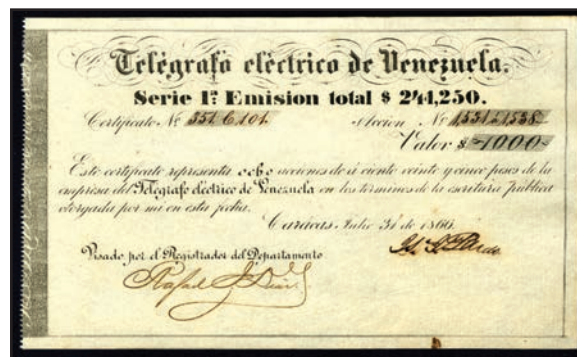 Telégrafo eléctrico de Venezuela.
Serie 1ª Emision total $ 244,250.
Certificato Nº 351.6.101. Accion Nº 1,531 á 1,538
Valor $ 1000
Este certificato representa ocho acciones de á ciento veinte y cinco pesos de la
empresa del Telégrafo eléctrico de Venezuela en los términos de la escritura pública
otorgada por mi en esta fecha.
Carácas Julio 31 de 1866.
Visado por el Registrador del Departamento
Rafael J.